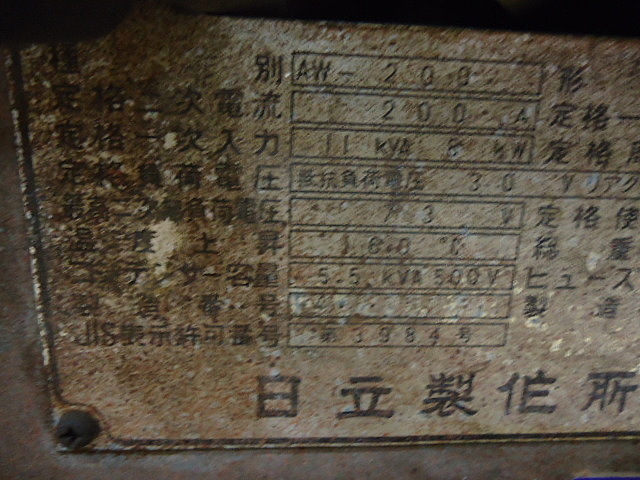 種別 AW-200 形
定格二次電流 200 A 定格一
定格一次入力 11 KVA 8 KW 定格周
定格負荷電圧 抵抗負荷電圧 30 V リアク
最高二次無負荷電圧 73 V 定格使
温度上昇 160 °C 総重
コンデンサー容量 5.5 KVA 500V ヒューズ
番号 製造
JIS表示許可番号 第 3984号
日立製作所